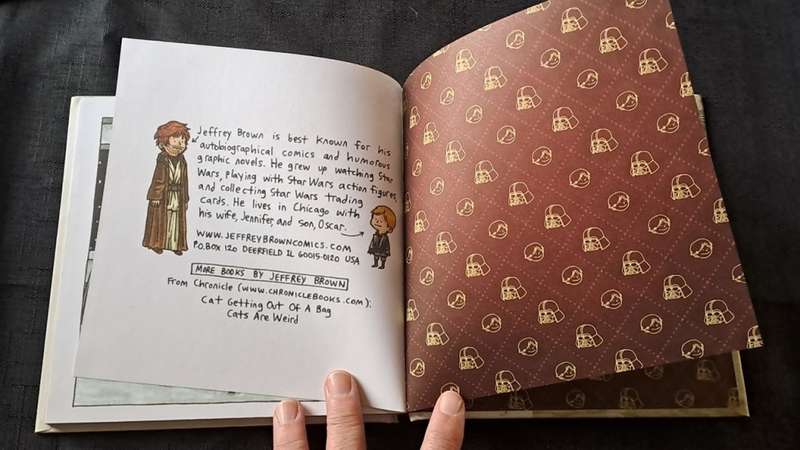 Jeffrey Brown is best known for his
autobiographical comics and humorous
graphic novels. He grew up watching Star
Wars, playing with Star Wars action figures,
and collecting Star Wars trading
cards. He lives in Chicago with
his wife, Jennifer, and son, Oscar.
WWW.JEFFREYBROWNCOMICS.COM
P.O. BOX 120 DEERFIELD IL 60015-0120 USA
MORE BOOKS BY JEFFREY BROWN
From Chronicle (WWW.CHRONICLEBOOKS.COM):
Cat Getting Out Of A Bag
Cats Are Weird